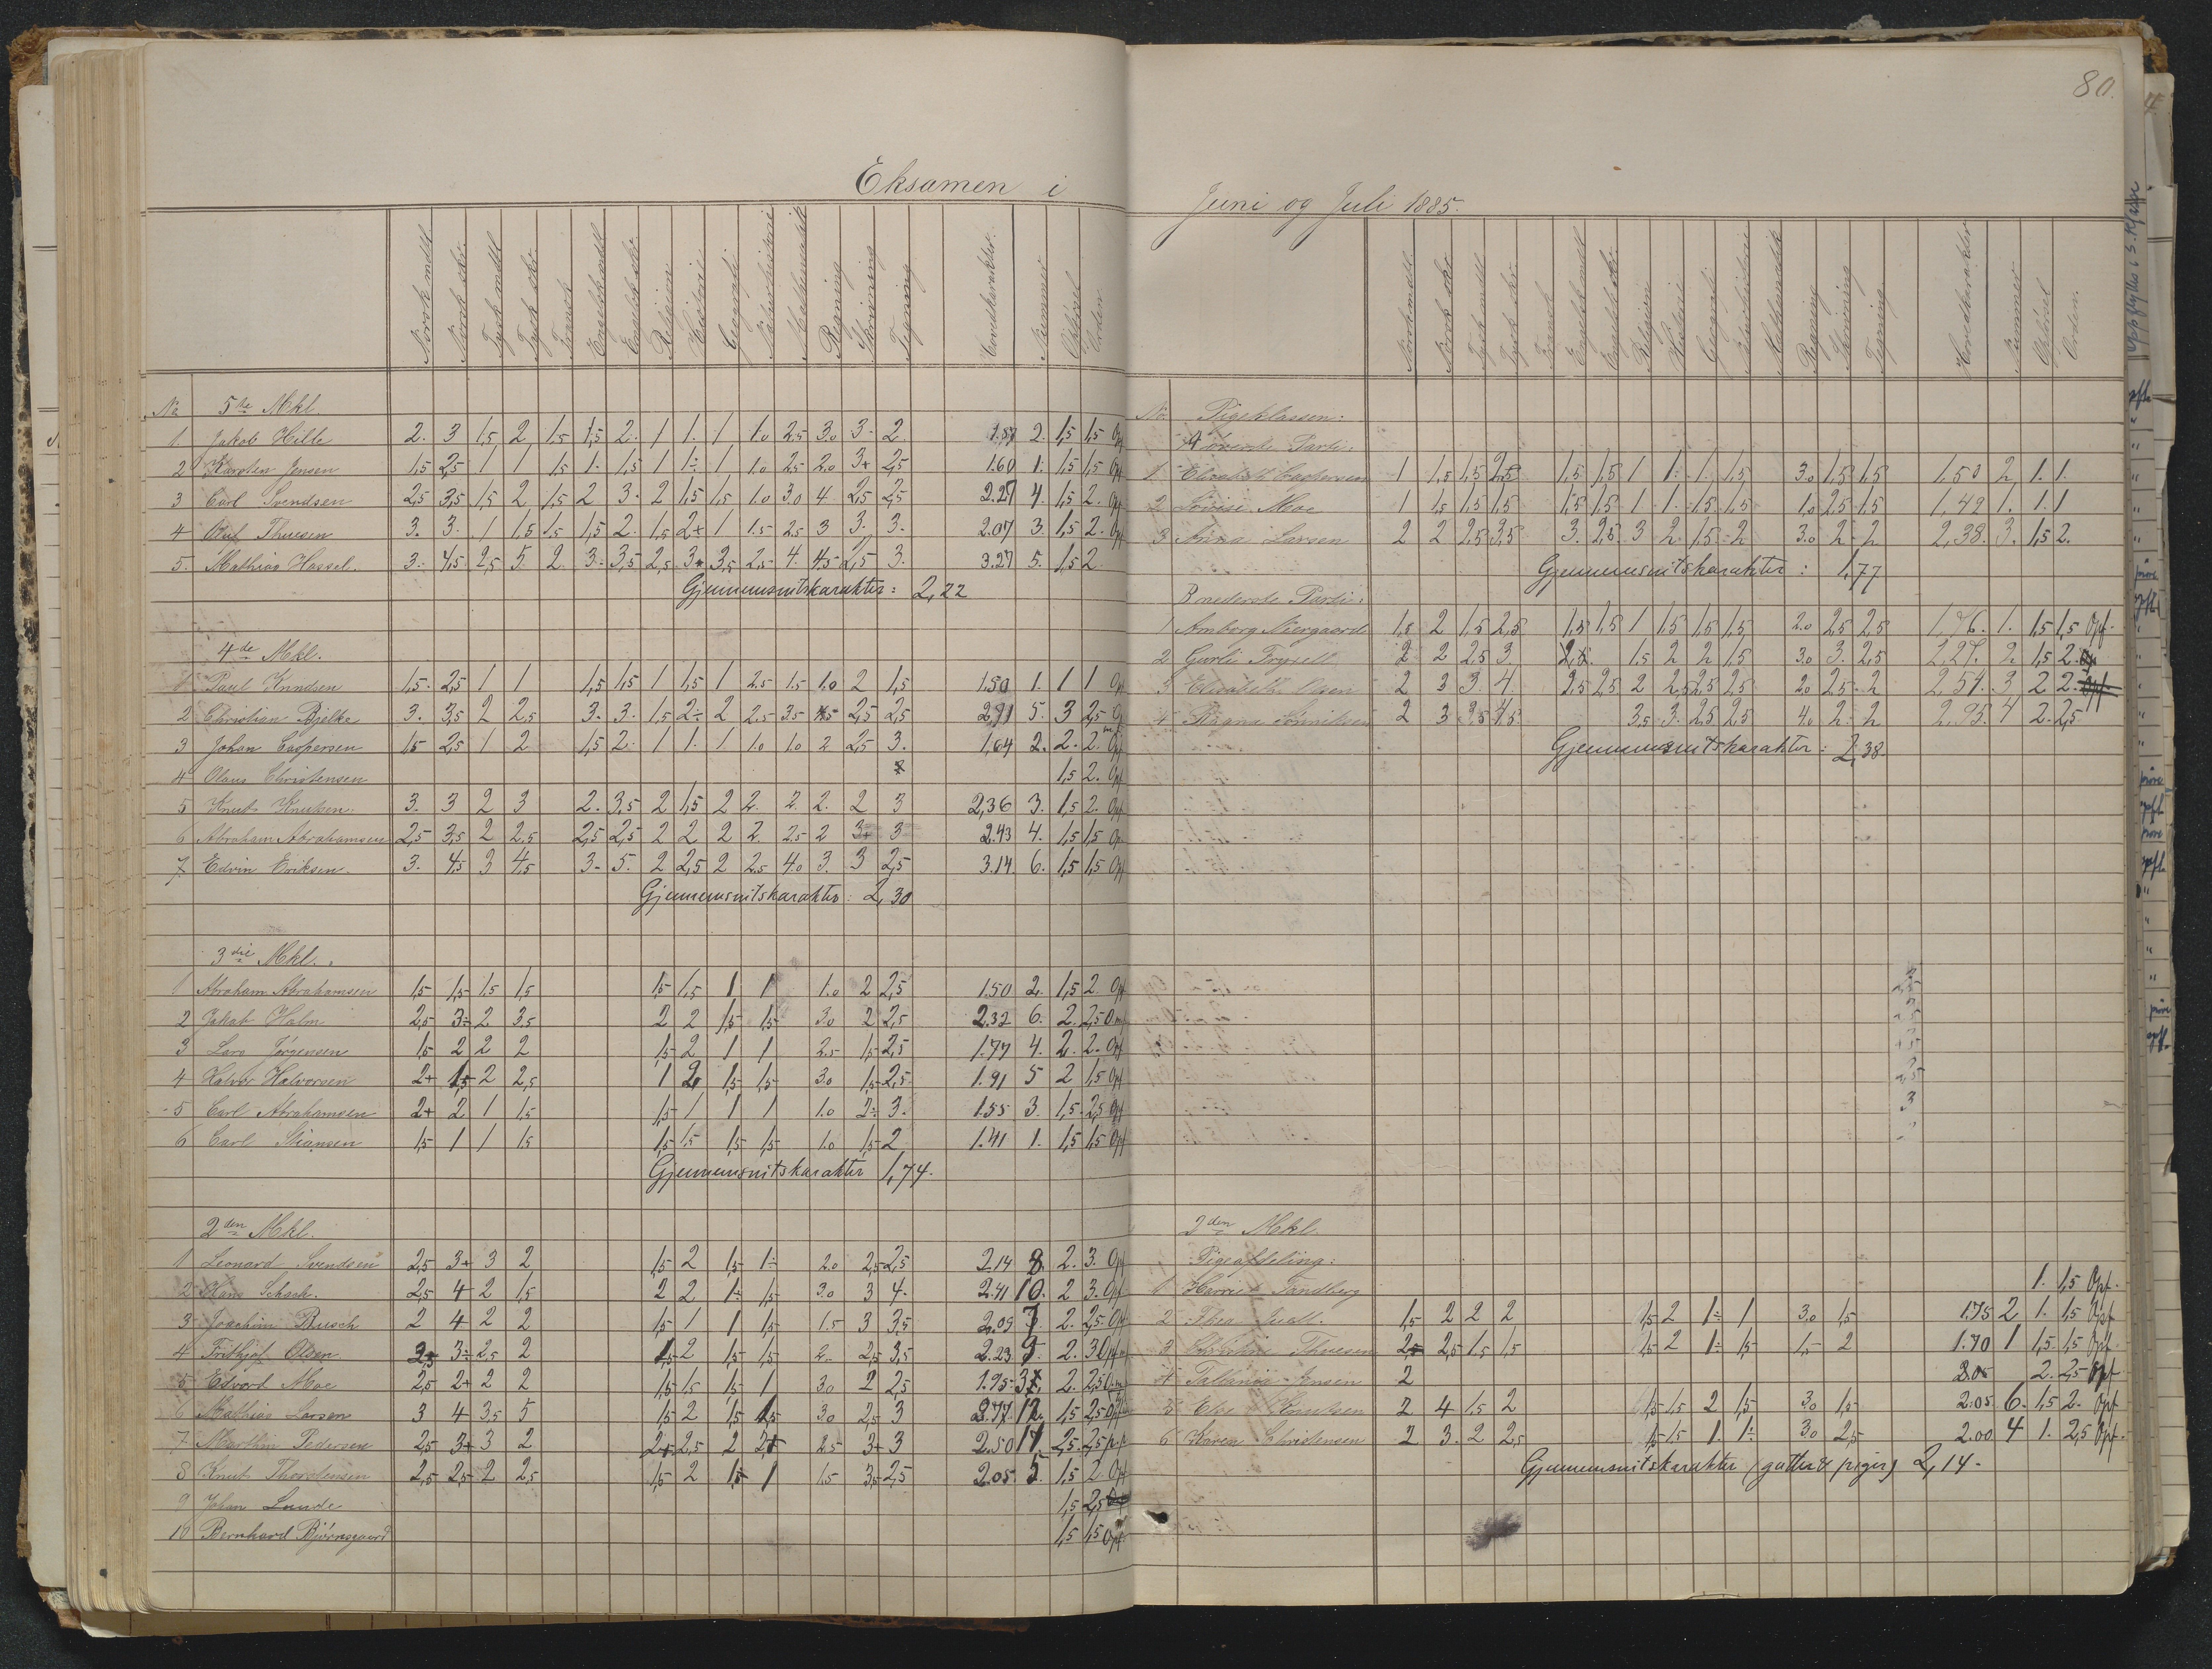 80.
Eksamen i Juni og Juli 1885.
Norsk mdtl. Norsk skr. Tysk mdtl. Tysk skr. Fransk Engelsk mdtl. Engelsk skr. Religion Historie Geografi Naturhistorie Mathematik Regning Skrivning Tegning Hovedkarakter. Nummer Opførsel Orden
No 5te Mkl.
1 Jakob Hille 2. 3 1,5 2 1,5 1,5 2. 1 1. 1 1.0 2.5 3.0 3. 2. 1.87 2. 1,5 1,5 Opf
2 Karsten Jensen 1,5 2,5 1 1 1,5 1. 1,5 1 1÷ 1 1.0 2.5 2.0 3+ 2,5 1.60 1. 1,5 1,5 Opf
3 Carl Svendsen 2,5 3,5 1,5 2 1,5 2 3. 2 1,5 1,5 1.0 3.0 4 2,5 2,5 2.27 4. 1,5 2. Opf
4 Thuesen 3. 3. 1 1.5 1.5 1,5 2. 1,5 2+ 1 1.5 2.5 3 3. 3. 2.07 3. 1,5 2. Opf
5. Mathias Hassel. 3. 4,5 2,5 5. 2. 3. 3,5 2,5 3+ 3,5 2.5 4. 4.5 2,5 3. 3.27 5. 1,5 2
Gjennemsnitskarakter: 2,22
4de Mkl.
1 Paul Knudsen 1,5. 2,5 1 1 1,5 1,5 1 1,5 1 2.5 1.5 1.0 2 1,5 1.50 1. 1 1 Op
2 Christian Bjelke 3. 3,5 2 2,5 3. 3. 1,5 2÷ 2 2.5 3.5 2,5 2,5 5. 3 2,5
3 Johan Caspersen 1,5 2,5 1 2 1,5 2. 1 1. 1 1.0 1.0 2 2,5 3. 1.64 2. 2. 2. Opf
4 Olaus Christensen 1,5 2. Opf
5 Knut Knutsen. 3. 3 2 3 2. 3,5 2 1,5 2 2. 2. 2. 2 3 2,36 3. 1,5 2. Opf
6 Abraham Abrahamsen 2,5 3,5 2 2,5 2,5 2,5 2 2 2 2. 2.5 2 3+ 3 2.43 4. 1,5 1,5 Op
7 Edvin Eriksen. 3. 4,5 3 4,5 3. 5. 2 2,5 2 2.5 4.0 3. 3 2,5 3.14. 6. 1,5 1,5 Opf
Gjennemsnitskarakter: 2,30
3die Mkl.
1 Abraham Abrahamsen 1,5 1,5 1,5 1,5 1,5 1,5 1 1 1.0 2 2,5 1.50 2. 1,5 2 Opf
2 Jakob Holm 2,5 3÷ 2 3,5 2 2 1,5 1,5 3.0 2 2,5 2.32 6. 2. 2,5
3 Lars Jørgensen 1,5 2 2 2 1,5 2 1 1 2.5 1,5 2,5 1.77 4. 2. 2. Opf
4 Halvor Halvorsen 2+ 1,5 2 2,5 1 2 1,5 1,5 3.0 1,5 2,5 1.91 5 2 1,5 Opf
5 Carl Abrahamsen 2+ 2 1 1,5 1,5 1 1 1 1.0 2÷ 3. 1.55 3. 1,5. 2,5 Opf
6 Carl Stiansen 1,5 1 1 1,5 1,5 1,5 1,5 1,5 1.0 1,5 2 1.41 1. 1,5 1,5 Opf
Gjennemsnitskarakter 1,74.
2den Mkl.
1 Leonard Svendsen 2,5 3+ 3 2 1,5 2 1,5 1÷ 2.0 2,5 2,5 2.14 8. 2. 3. Opf
2 Hans Schack. 2,5 4 2 1,5 2 2 1÷ 1,5 3.0 3 4. 2.41 10. 2 3. Opf
3 Joachim Rusch 2 4 2 2 1,5 1 1 1,5 1.5 3 3,5 2.09 7. 2. 2,5. Opf
4 Frithjof Olsen 3÷ 2,5 2 2 1,5 1,5 2. 2,5 3,5 2.23 9. 2. 3
5 Edvart Moe 2,5 2+ 2 2 1,5 1,5 1,5 1 3.0 2 2,5 1.95 2. 2,5
6 Mathias Larsen 3 4 3,5 5 1,5 2 1,5 3.0 2,5 3 12. 1,5 2,5
7 Marthin Pedersen 2,5 3+ 3 2 2+ 2,5 2 2+ 2.5 3+ 3 2.50 11. 2,5. 2,5
8 Knut Thorstensen 2,5 2,5 2 2,5 1,5 2 1,5 1 1.5 3,5 2,5 2.05 5. 1,5 2 Opf
9 Johan Lunde 1,5 2,5
10 Bernhard Bjørnsgaard 1,5 1,5 Opf
Norsk mdtl. Norsk skr. Tysk mdtl. Tysk skr. Fransk Engelsk mdtl. Engelsk skr. Religion Historie Geografi Naturhistorie Mathematik Regning Skrivning Tegning Hovedkarakter Nummer Opførsel Orden.
No. Pigeklassen:
A øverste Parti.
1 Elisabeth Caspersen 1 1,5 1,5 2,5 1,5 1,5 1 1÷ 1, 1,5 3.0 1,5 1,5 1,50 2, 1. 1.
2 Lovise Moe 1 1,5 1,5 1,5 1,5 1,5 1 1. 1,5 1,5 1.0 2,5 1,5 1,42 1. 1. 1
3 Anna Larsen 2 2 2,5 3,5 3. 2,5 3 2. 1,5 2 3.0 2. 2 2,38. 3. 1,5 2.
Gjennemsnitskarakter: 1,77
B nederste Parti:
1 Amborg Niergaard 1,5 2 1,5 2,5 1,5 1,5 1 1,5 1,5 1,5 2.0 2,5 2,5 1,76. 1. 1,5 1,5 Opf.
2 Gurli Frysell 2 2 2,5 3 1,5 2 2 1,5 3.0 3. 2,5 2,27. 2 1,5 2.
3 Elisabeth Olsen 2 3 3. 4. 2,5 2,5 2 2,5 2,5 2,5 2.0 2,5. 2 2,54. 3 2 2. Opf.
4 Ragna Tønnesen 2 3 3,5 4,5 3,5 3. 2,5 2,5 4.0 2. 2 2,95. 4 2. 2,5
Gjennemsnitskarakter: 2,38.
2den Mkl.
Pigeafdeling:
1 Harriet Tandberg 1. 1,5 Opf.
2 Thea Juell. 1,5 2 2 2 1,5 2 1÷ 1 3.0 1,5 1.75 2 1. 1,5 Opf
3 Thuesen 2,5 2,5 1,5 1,5 1,5 2 1÷ 1,5 1,5 2 1.70 1 1,5. 1,5 Opf.
4 Jensen 2 2. 2,5 Opf
5 Else Knutsen 2 4 1,5 2 1,5 1,5 2 1,5 3.0 1,5 2.05 6. 1,5 2. Opf
6 Karen Christensen 2 3. 2 2,5 1,5 1,5 1. 1÷ 3.0 2,5 2.00 4 1. 2,5 Opf.
Gjennemsnitskarakter (gutter & piger) 2,14.